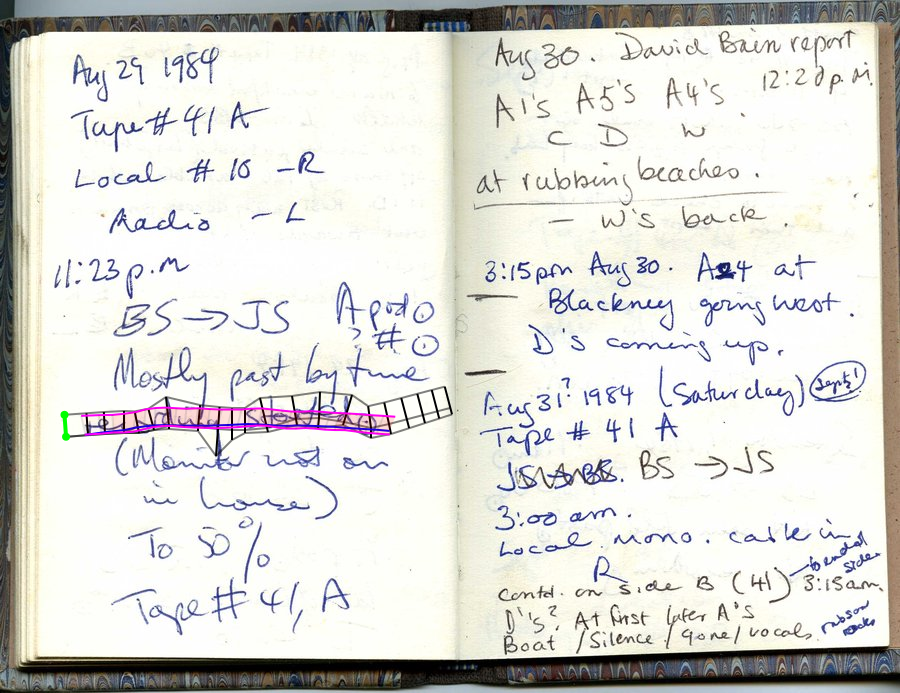 Aug 29 1984
Tape # 41 A
Local # 10 - R
Radio - L
11:23 p.m
BS → JS A pod ①
? # ①
Mostly past by time
(Monitor not on
in house)
To 50%
Tape # 41, A
Aug 30. David Bain report
12:20 p.m.
A1's A5's A4's
C D W
at rubbing beaches.
- W's back.
3:15pm Aug 30. A4 at
Blackney going west.
D's coming up.
Aug 31? 1984 (Saturday) Sept 1
Tape # 41 A
JS → BS. BS → JS
3:00 am.
Local mono. cable in
R
contd. on side B (41) 3:15am.
side
D's? At first later A's
Boat / Silence / gone / vocals